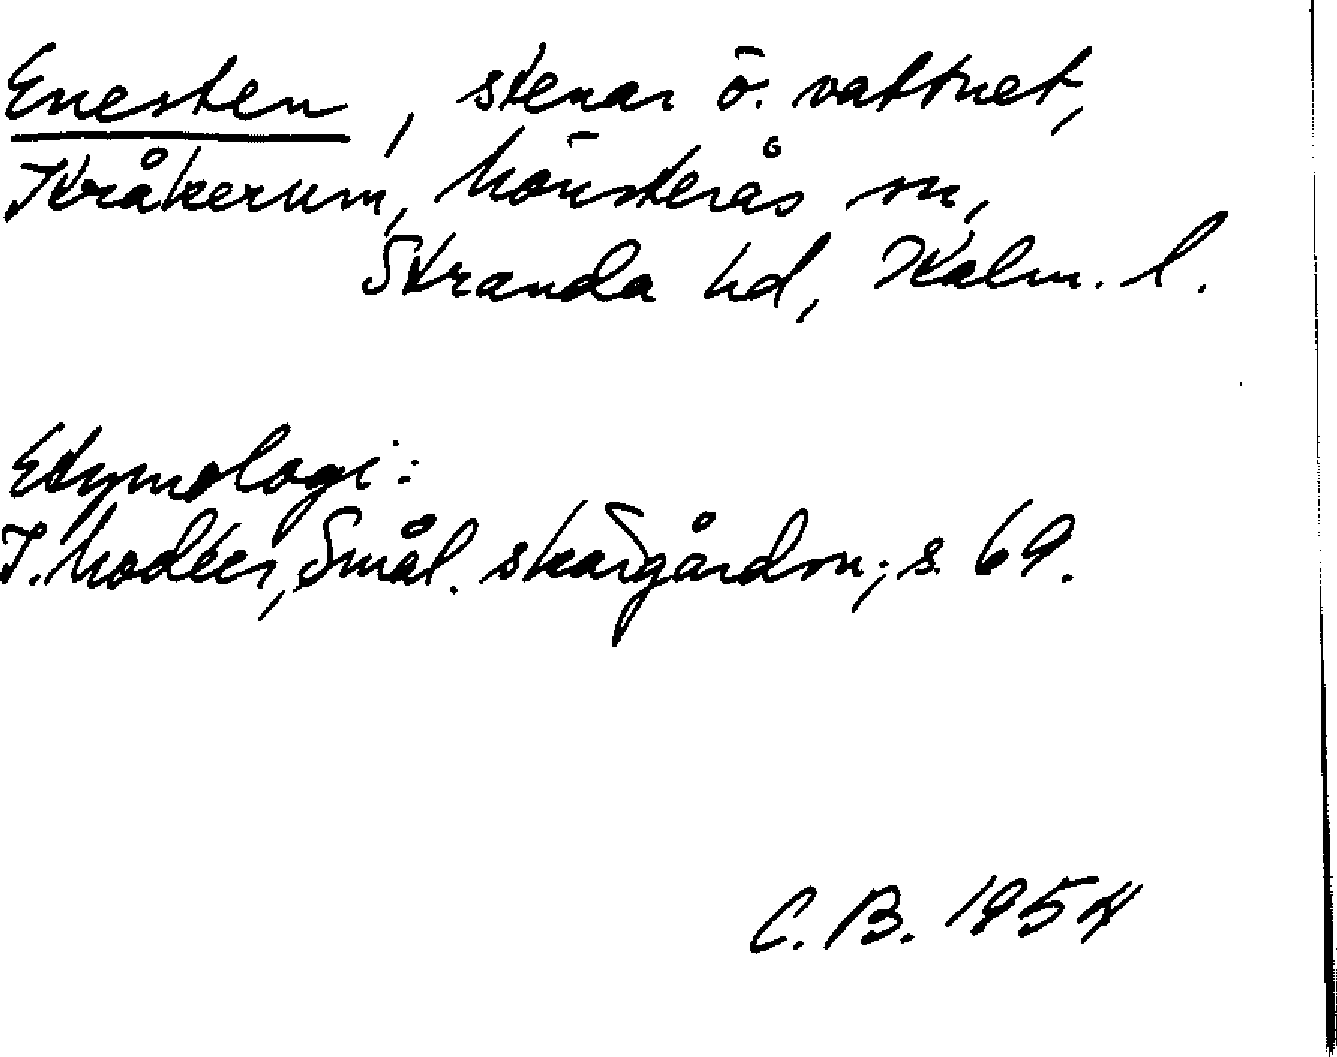 Enesten, stenar ö. vattnet,
Kråkerum, Mönsterås sn,
Stranda hd, Kalm. l.
Etymologi:
I. Modéer, Smål. skärgårdsn., s. 69.
C. B. 1954